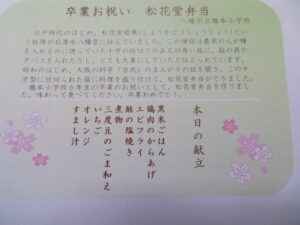 卒業お祝い 松花堂弁当
八幡市立橋本小学校
江戸時代のはじめ、松花堂昭乗(しょうかどうしょうじょう)とい
う社僧が石清水八幡宮に住んでいました。この僧侶は農家の人が種
を入れるのに使っていた十字の仕切りのある四角い箱に、絵の具や
タバコを入れたりして、とても大事にしていたと伝えられています。
昭和のはじめ、大阪の料亭「吉兆」の主人がその話を聞き、この十
字型に仕切られた箱に料理を盛り付けて、松花堂弁当ができました。
橋本小学校６年生の卒業のお祝いとして、松花堂弁当を作りまし
た。味わって食べてください。卒業おめでとう。
本日の献立
黒米ごはん
鶏肉のからあげ
エビフライ
鮭の塩焼き
煮物
三度豆のごま和え
いちご
オレンジ
すまし汁